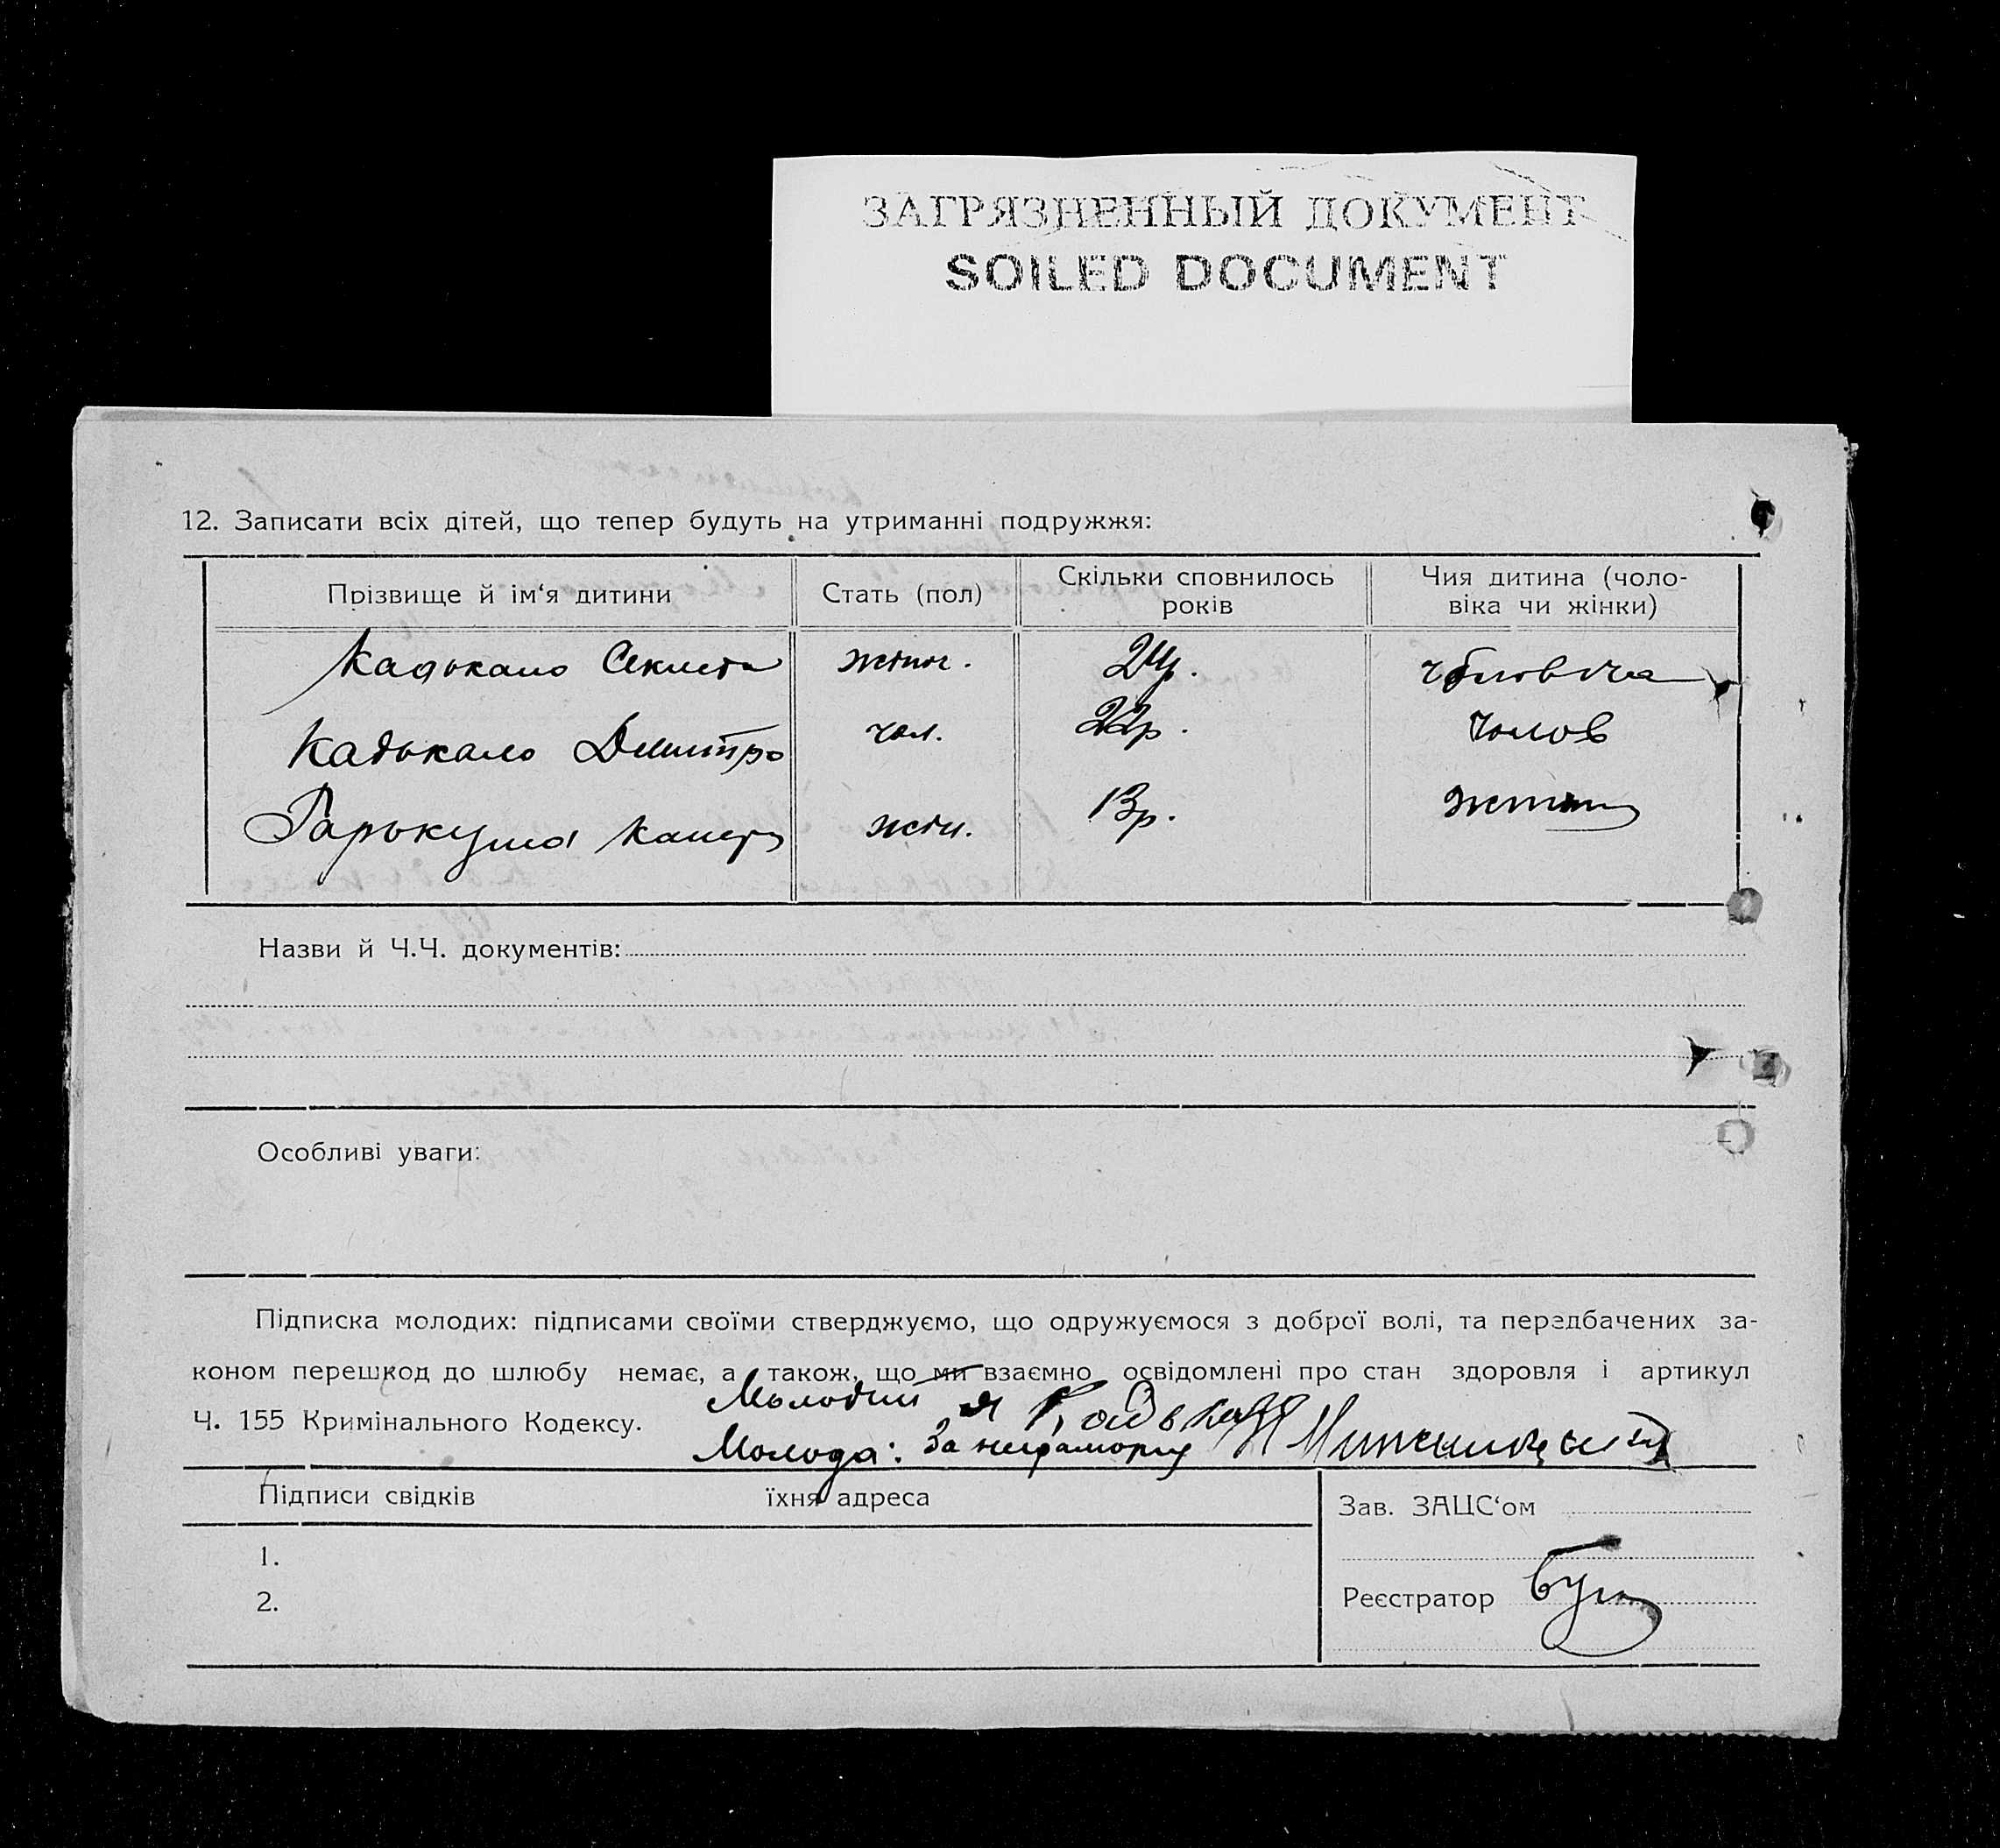 ЗАГРЯЗНЕННЫЙ ДОКУМЕНТ
SOILED DOCUMENT
12. Записати всіх дітей, що тепер будуть на утриманні подружжя:
Прізвище й ім‘я дитини Стать (пол) Скільки сповнилось років Чия дитина (чоловіка чи жінки)
Кадькало Секлета жіноч. 24р. чоловіча
Кадькало Дмитро чол. 22р. чолов
Гарькуша жін. 13р.
Назви й Ч.Ч. документів:
Особливі уваги:
Підписка молодих: підписами своїми стверджуємо, що одружуємося з доброї волі, та передбачених за-
коном перешкод до шлюбу немає, а також, що ми взаємно освідомлені про стан здоровля і артикул
Ч. 155 Кримінального Кодексу. Молодий
Молода: За неграмотну
Підписи свідків їхня адреса
Зав. ЗАЦС‘ом
1.
2.
Реєстратор